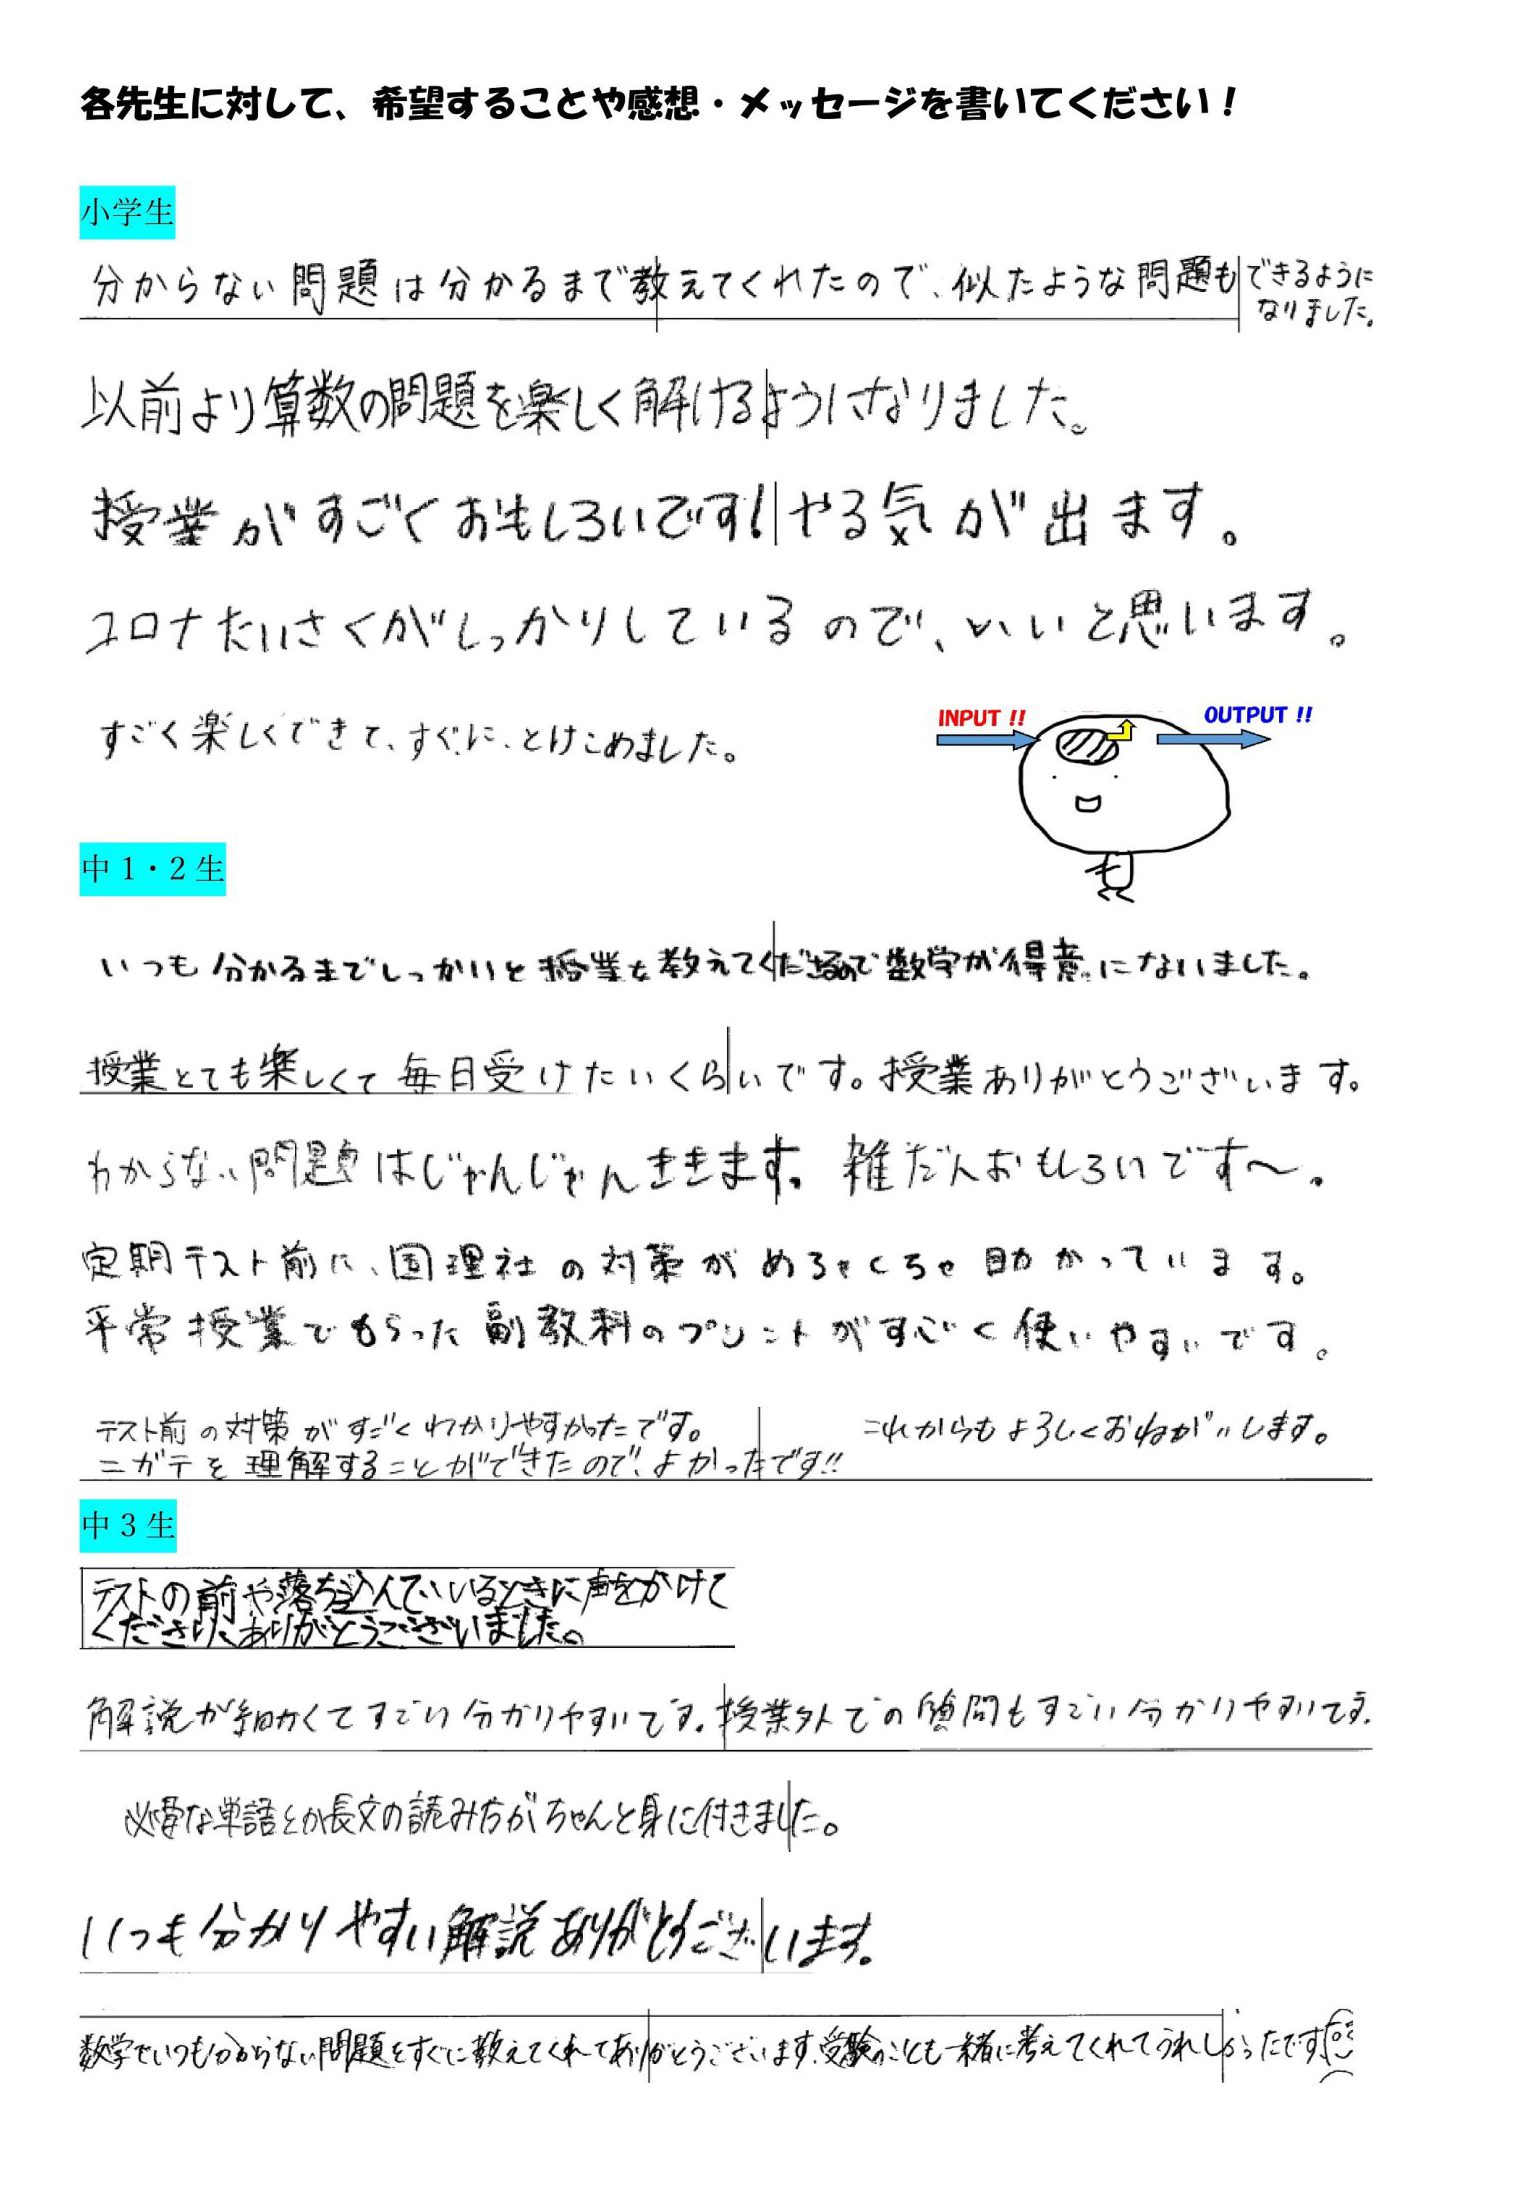 各先生に対して、希望することや感想・メッセージを書いてください!
小学生
分からない問題は分かるまで教えてくれたので、似たような問題もできるように
なりました。
以前より算数の問題を楽しく解けるようになりました。
授業がすごくおもしろいです!やる気が出ます。
コロナたいさくがしっかりしているので、いいと思います。
すごく楽しくできて、すぐに、とけこめました。
INPUT !!
OUTPUT !!
中1・2生
いつも分かるまでしっかりと授業を教えてくださるので数学が得意になりました。
授業とても楽しくて毎日受けたいくらいです。授業ありがとうございます。
わからない問題はじゃんじゃんききます。雑だんおもしろいです〜。
定期テスト前に、国理社の対策がめちゃくちゃ助かっています。
平常授業でもらった副教科のプリントがすごく使いやすいです。
テスト前の対策がすごくわかりやすかったです。 これからもよろしくおねがいします。
ニガテを理解することができたので、よかったです!!
中3生
テストの前や落ち込んでいるときに声をかけて
くださり、ありがとうございました。
解説が細かくてすごい分かりやすいです。授業外での質問もすごい分かりやすいです。
必要な単語とか長文の読み方がちゃんと身に付きました。
いつも分かりやすい解説ありがとうございます。
数学でいつも分からない問題をすぐに教えてくれてありがとうございます。受験のことも一緒に考えてくれてうれしかったです